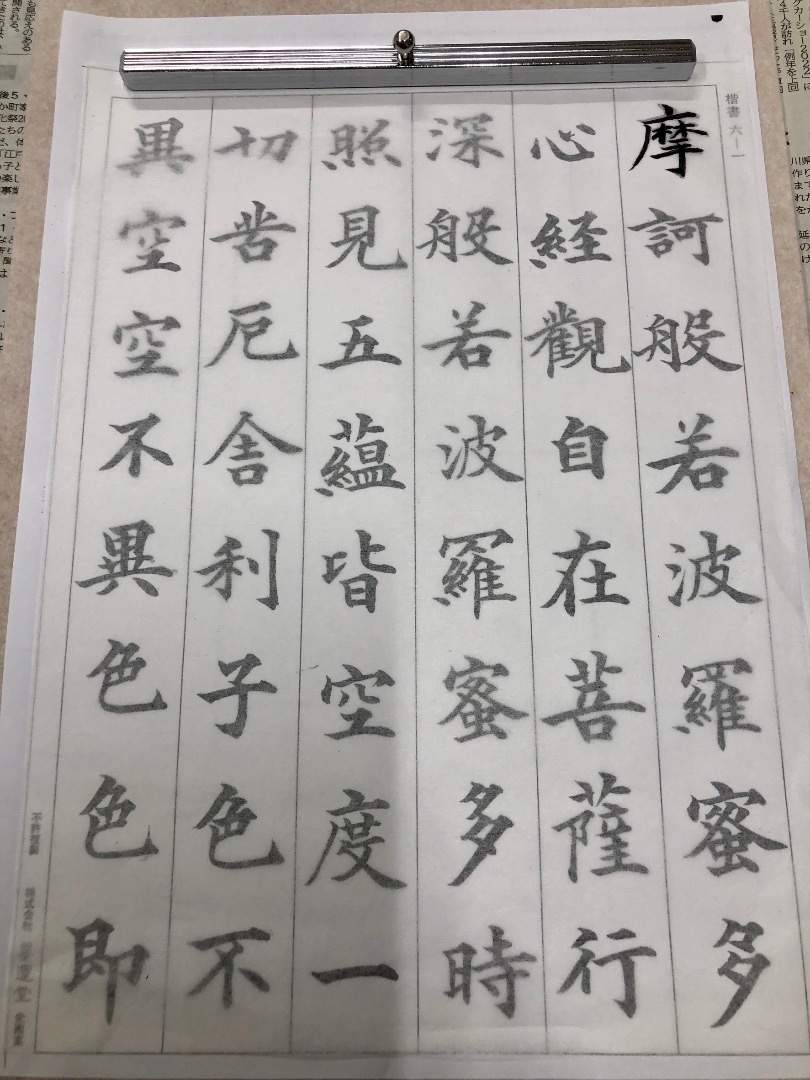 楷書 六―一
摩訶般若波羅蜜多
心経觀自在菩薩行
深般若波羅蜜多時
照見五蘊皆空度一
切苦厄舎利子色不
異空空不異色色即
不許複製
株式会社